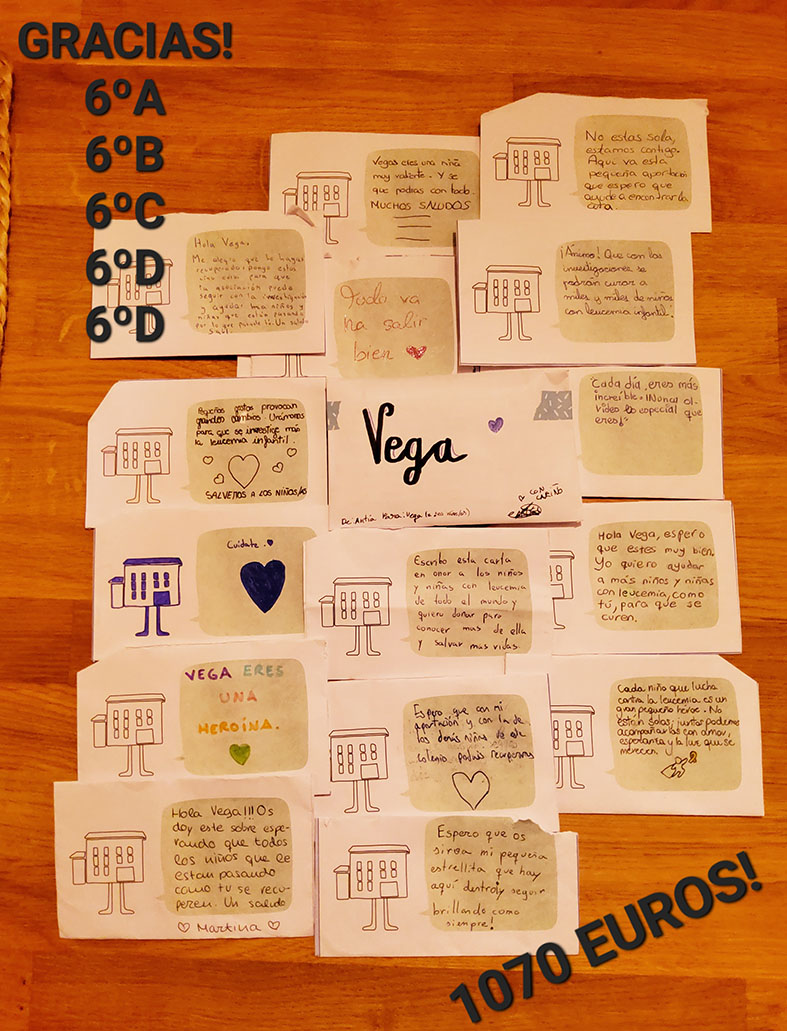 GRACIAS!
6ºA
6ºB
6ºC
6ºD
6ºD
Vegas eres una niña
muy valiente. Y se
que podras con todo.
MUCHOS SALUDOS
No estas sola,
estamos contigo.
Aqui va esta
pequeña aportación
que espero que
ayude a encontrar la
cura.
Hola Vega.
Me alegro que te hayas
recuperado; pongo estos
para que
tu asociación pueda
seguir con la investigación
y niños y
niñas que estan pasando
por lo que pasaste tú. Un saludo
¡Ánimo! Que con las
investigaciones se
podran curar a
miles y miles de niños
con leucemia infantil.
Todo va
ha salir
bien
Pequeños gestos provocan
grandes cambios. Unámonos
para que se investige más
la leucemia infantil.
SALVEMOS A LOS NIÑOS/AS
Vega
De: Antía Para: Vega (a los niños/as)
CON
CARIÑO
Cada día, eres más
increíble. ¡Nunca ol-
vides lo especial que
eres!
Cuidate.
Escribo esta carta
en onor a los niños
y niñas con leucemia
de todo el mundo y
quiero donar para
conocer mas de ella
y salvar mas vidas.
Hola Vega, espero
que estes muy bien.
Yo quiero ayudar
a más niños y niñas
con leucemia, como
tú, para que se
curen.
VEGA ERES
UNA
HEROÍNA.
Espero que con mi
aportación y con la de
los demás niños de este
colegio, podáis recuperaros
Cada niño que lucha
contra la leucemia es un
gran pequeño heroe. No
están solos; juntos podemos
acompañarlos con amor,
esperanza y la luz que se
merecen
Hola Vega!!! Os
doy este sobre espe-
rando que todos
los niños que le
estan pasando
como tu se recu-
peren. Un saludo
Martina
Espero que os
sirva mi pequeña
estrellita que hay
aquí dentro y seguir
brillando como
siempre!
1070 EUROS!